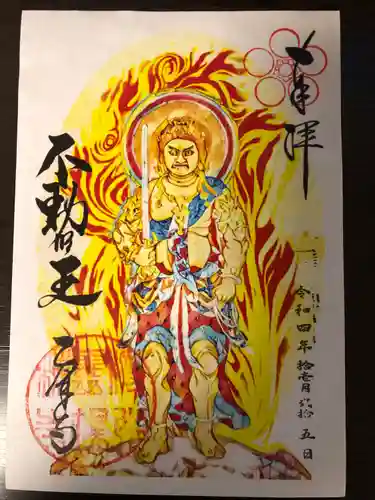 奉拝
令和四年拾壱月弐拾五日
不動明王